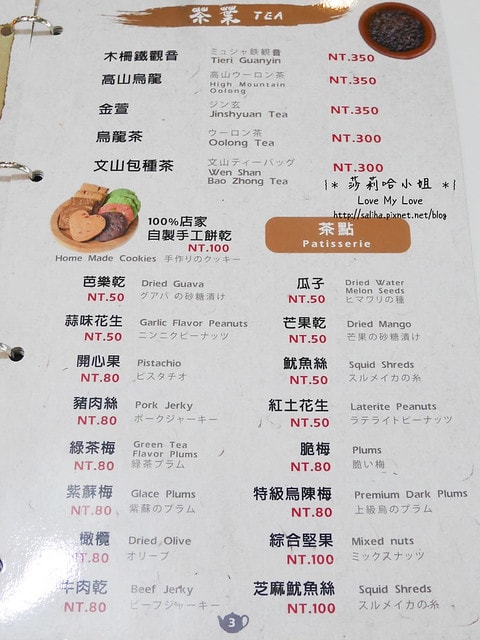 茶葉 TEA
木柵鐵觀音 ミュシャ鉄観音 NT.350
Tieri Guanyin
高山烏龍 高山ウーロン茶 NT.350
High Mountain
Oolong
金萱 ジン玄 NT.350
Jinshyuan Tea
烏龍茶 ウーロン茶 NT.300
Oolong Tea
文山包種茶 文山ティーバッグ NT.300
Wen Shan
Bao Zhong Tea
|* 莎莉哈小姐 *|
Love My Love
http://saliha.pixnet.net/blog
100%店家
自製手工餅乾
NT.100
Home Made Cookies 手作りのクッキー
茶點
Patisserie
芭樂乾 Dried Guava
NT.50 グアバ の砂糖漬け
蒜味花生 Garlic Flavor Peanuts
NT.50 ニンニクピーナッツ
開心果 Pistachio
NT.80 ピスタチオ
豬肉絲 Pork Jerky
NT.80 ポークジャーキー
綠茶梅 Green Tea
Flavor Plums
NT.80 緑茶プラム
紫蘇梅 Glace Plums
NT.80 紫蘇のプラム
橄欖 Dried Olive
NT.80 オリーブ
牛肉乾 Beef Jerky
NT.80 ビーフジャーキー
瓜子 Dried Water
Melon Seeds
NT.50 ヒマワリの種
芒果乾 Dried Mango
NT.50 芒果の砂糖漬け
魷魚絲 Squid Shreds
NT.50 スルメイカの糸
紅土花生 Laterite Peanuts
NT.50 ラテライトピーナッツ
脆梅 Plums
NT.80 脆い梅
特級烏陳梅 Premium Dark Plums
NT.80 上級烏のプラム
綜合堅果 Mixed nuts
NT.100 ミックスナッツ
芝麻魷魚絲 Squid Shreds
NT.100 スルメイカの糸
3